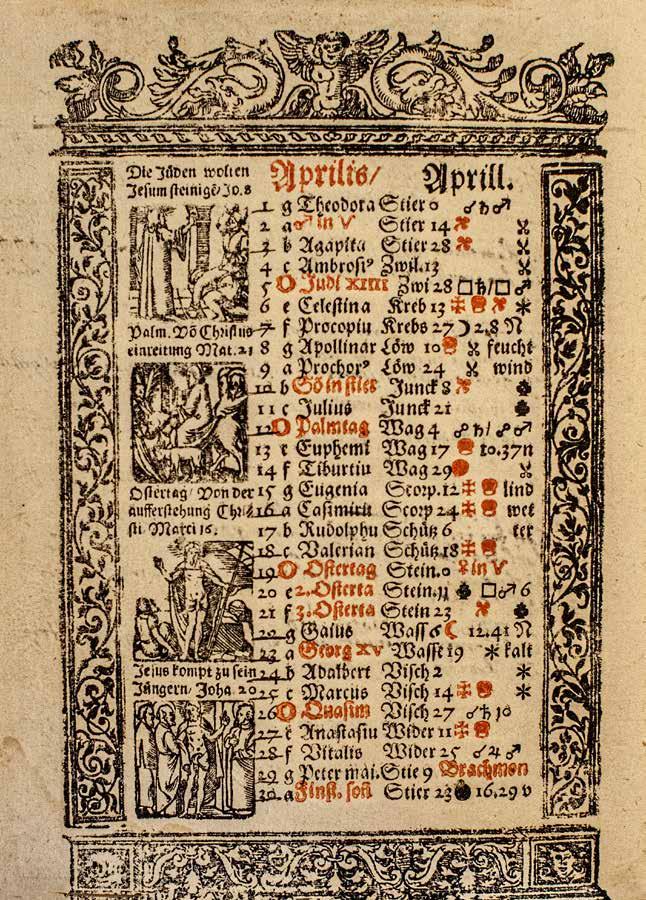 Die Jüden wolten
Jesum steinigẽ/Jo. 8
Aprilis/ Aprill.
1 g Theodora Stier 0 ☌♄♂
2 a ♂ in V Stier 14
3 b Agapita Stier 28
4 c Ambrosiꝰ Zwil. 13
5 Judi XIIII Zwi 28 □♄/□♂
6 e Celestina Kreb 13
Palm. Võ Christus
einreitung Mat. 21
7 f Procopiu Krebs 27 ☽ 2.8 N
8 g Apollinar Löw 10 feucht
9 a Prochorꝰ Löw 24 wind
10 b Junck 8
11 c Julius Junck 21
12 Palmtag Wag 4 ☍♄/☍♂
13 e Euphemi Wag 17 10.37n
14 f Tiburtiu Wag 29
Ostertag/ Von der
aufferstehung Chri-
sti. Marci 16.
15 g Eugenia Scorp. 12 lind
16 a Casimiru Scorp 24 wet
17 b Rudolphu Schütz 6 ter
18 c Valerian Schütz 18
19 Ostertag Stein. 0 ♀ in V
20 e 2. Osterta Stein. 11 □♂ 6
21 f 3. Osterta Stein 23
22 g Gaius Wass 6 ☾ 12.41 N
23 a Georg XV Wasse 19 kalt
Jesus kompt zu sein
Jüngern/ Joha. 20
24 b Adalbert Visch 2
25 c Marcus Visch 14
26 Quasim Visch 27 ☌♄ 10
27 e Anastasiu Wider 11
28 f Vitalis Wider 25 ☌♃♂
29 g Peter mai. Stie 9 Brachmon
30 a Finst. Stier 23 16.29 v